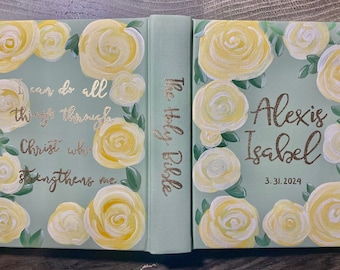 I can do all
things through
Christ who
strengthens me.
The Holy Bible
Alexis
Isabel
3.31.2024